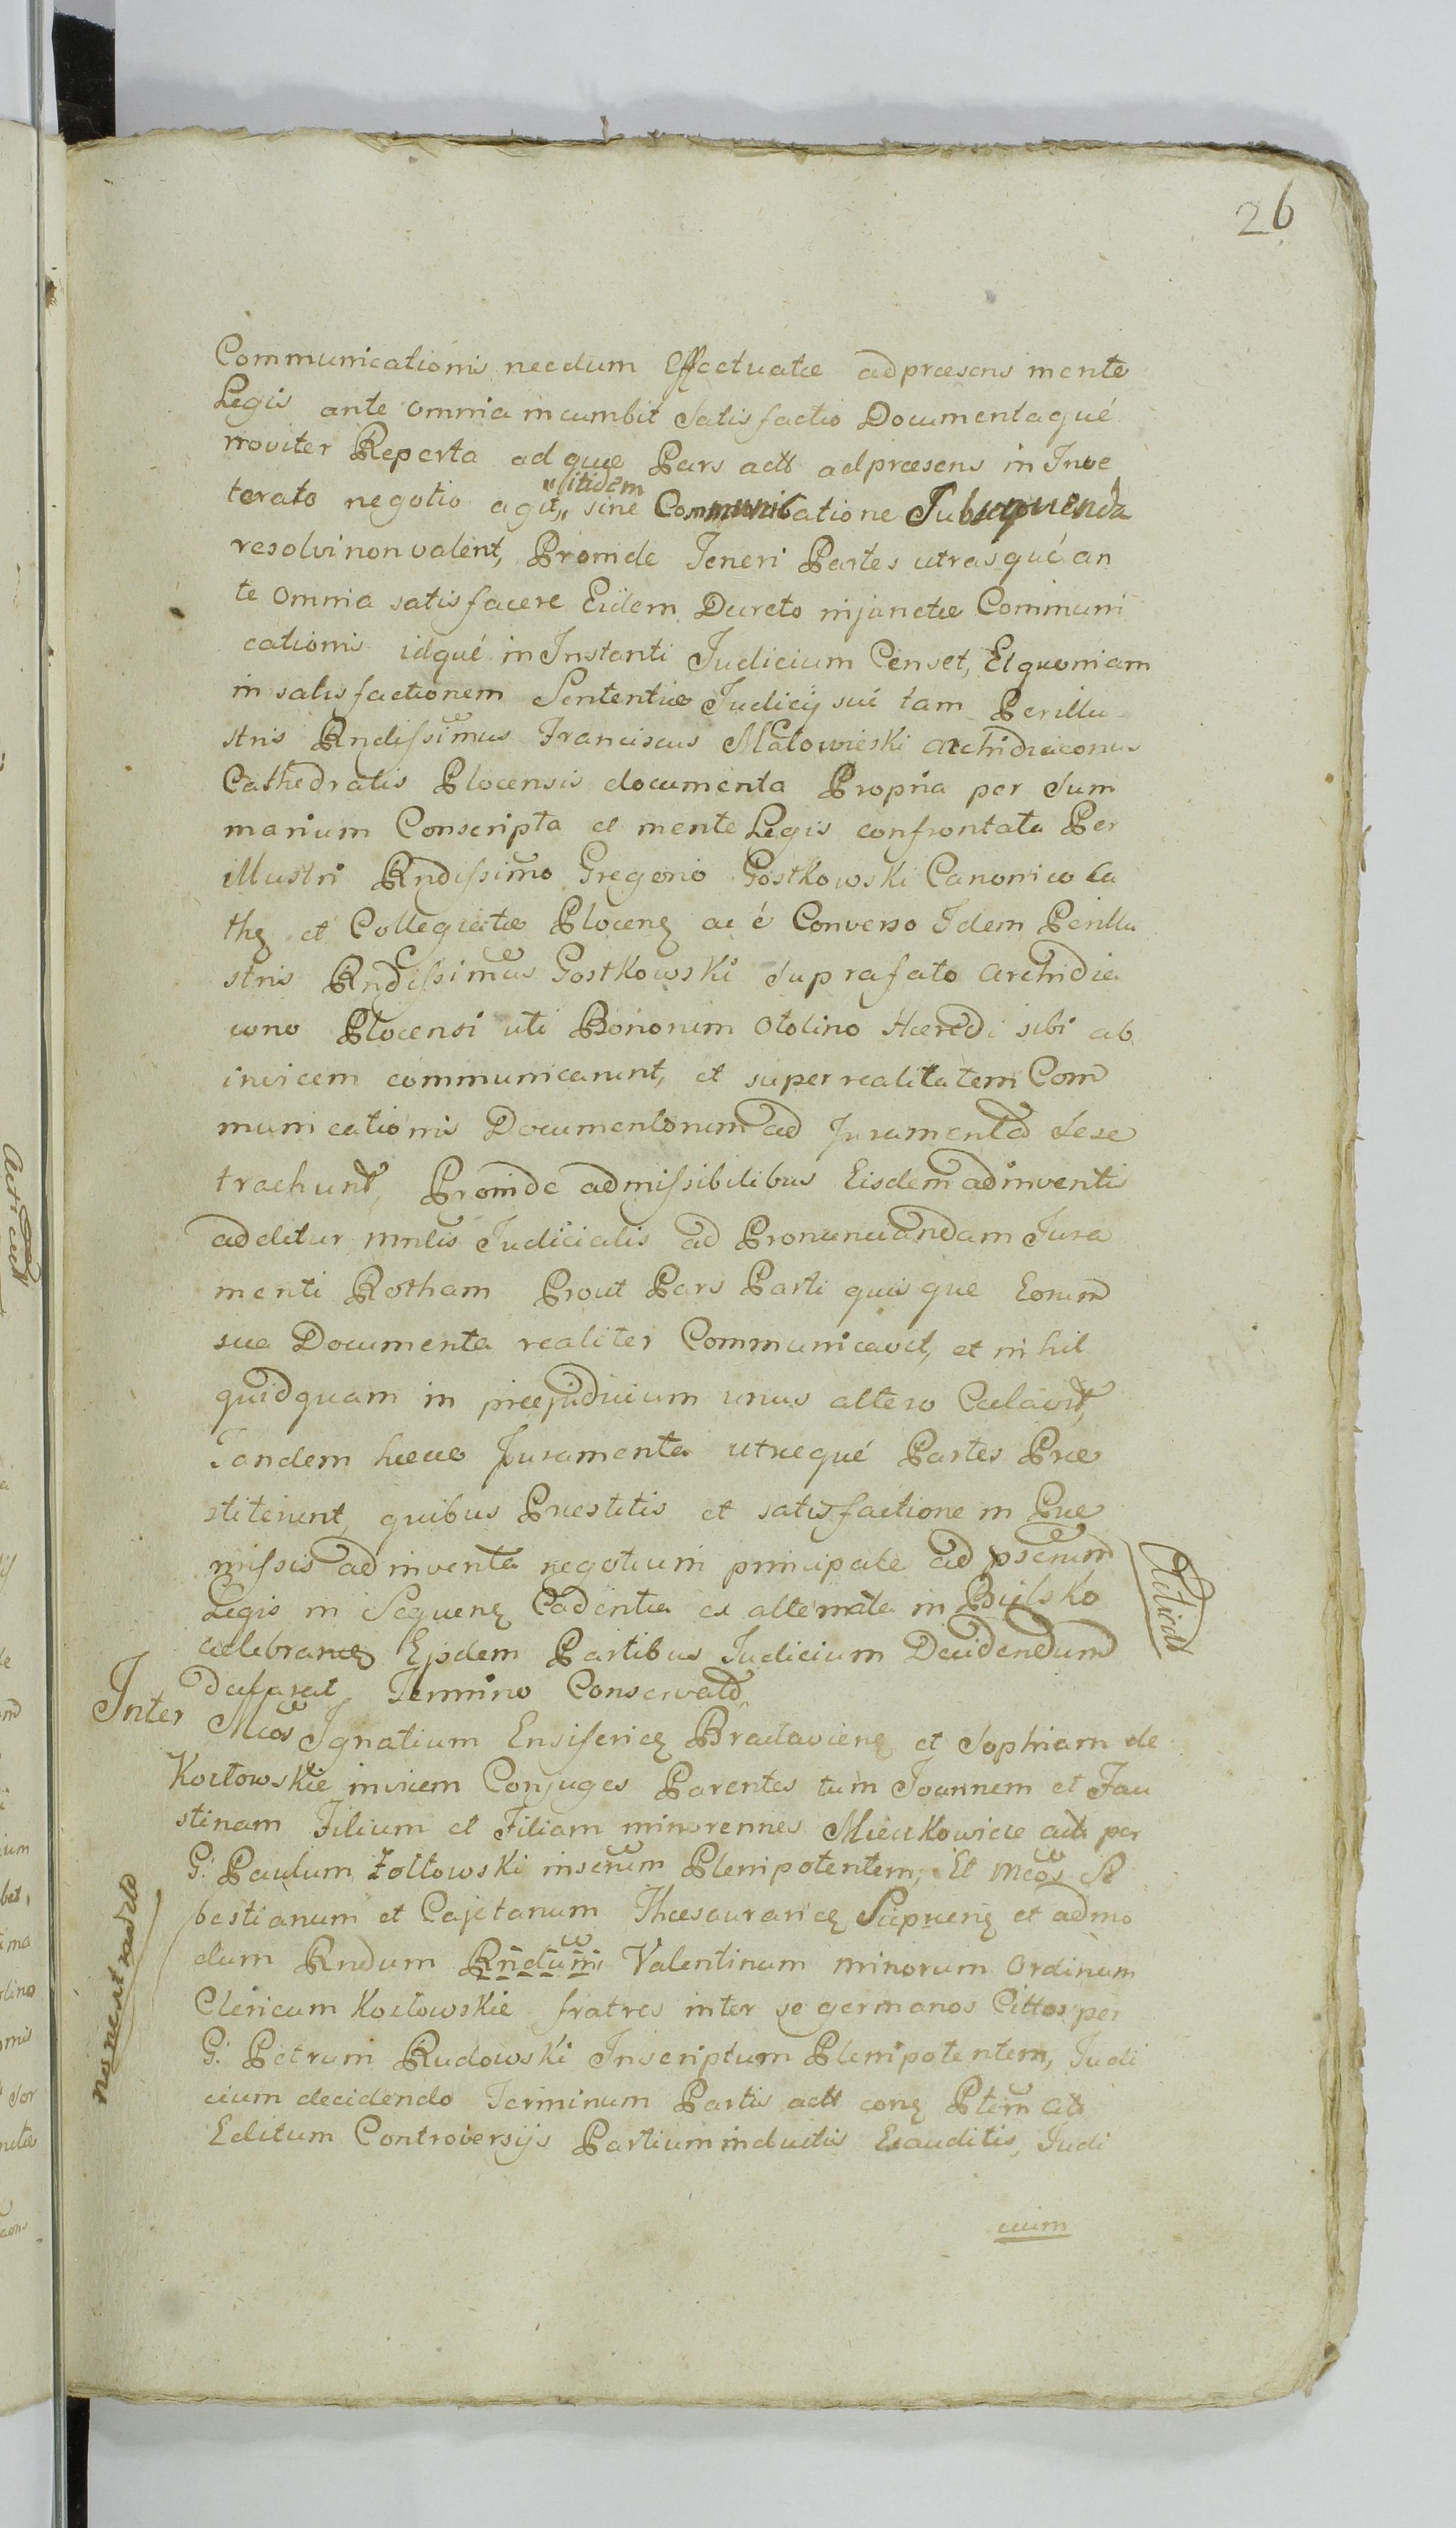 26
Communicationis necdum Effectuatæ ad præsens mente
Legis ante omnia incumbit satisfactio Documentaqué
noviter Reperta ad quæ Pars actt ad præsens in Inve
terato negotio agit, „itidem„ sine Communicatione Subsequenda
resolvi non valent, Proinde Teneri Partes utrasqué an
te omnia satisfacere Eidem Decreto injunctæ Communi
cationis idqué in Instanti Judicium Censet, Et quoniam
in satisfactionem Sententiæ Judicij sui tam Perillu
stris Rndissimus Franciscus Małowieski Archidiaconus
Cathedralis Plocensis documenta Propria per Sum
marium Conscripta et mente Legis confrontata Per
illustri Rndissimo Gregorio Gostkowski Canonico Ca
thę et Collegiatæ Plocenę ac é Converso Idem Perillu
stris Rndissimus Gostkowski suprafato Archidia
cono Plocensi uti Bonorum Otolino Hæredi sibi ab
invicem communicarunt, et super realitatem Com
municationis Documentorum ad Juramenta sese
trachunt, Proinde admissibilibus Eisdem adinventis
additur mnlis Judicialis ad Pronunciandam Jura
menti Rotham Prout Pars Parti quisque Eorum
sua Documenta realiter Communicavit, et nihil
quidquam in præjudicium unus altero Celavit,
Tandem hæcce Juramenta utræqué Partes Præ
stiterunt, quibus Præstitis et satisfactione in Præ
missis adinventa negotium principale ad pscrum
Legis in Sequenę Cadentia ex alternata in Bielsko
celebrandę Ejsdem Partibus Judicium Decidendum
Inter Mcos Ignatium Ensifericę Braclavienę et Sophiam de
Kozłowskie invicem Conjuges Parentes tum Joannem et Fau
stinam Filium et Filiam minorennes Mieczkowicie actt per
G: Paulum Zołtowski inscrum Plenipotentem, Et Mcos Se
bastianum et Cajetanum Thæsauraricę et admo
dum Rndum Rndum Valentinum minorum Ordinum
Clericum Kozłowskie fratres inter se germanos Cittos per
G: Petrum Rudowski Inscriptum Plenipotentem, Judi
cium decidendo Terminum Partis actt conę Ptem
Editum Controversijs Partium inductis Exauditis, Judi
cium